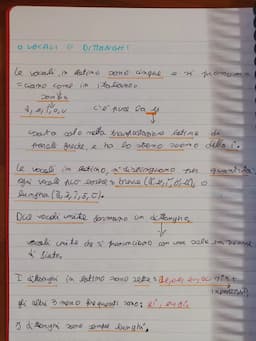 ○ VOCALI E DITTONGHI
Le vocali in latino sono cinque e si pronun
= ciano come in italiano.
sono
a, e, i, o, u c'è pure la y
usata solo nella trascrizione latina di
parole greche, e ha lo stesso suono della i.
Le vocali in latino, si distinguono per quantità
ogni vocale può essere: breve (ă, ĕ, ĭ, ŏ, ŭ) o
lunga (ā, ē, ī, ō, ū).
Due vocali unite formano un dittongo
vocali unite che si pronunciano con una sola emissione
di fiato.
I dittonghi in latino sono sette: ae, oe, eu, au
gli altri 3 meno frequenti sono: ei, ui.
I dittonghi sono sempre lunghi.